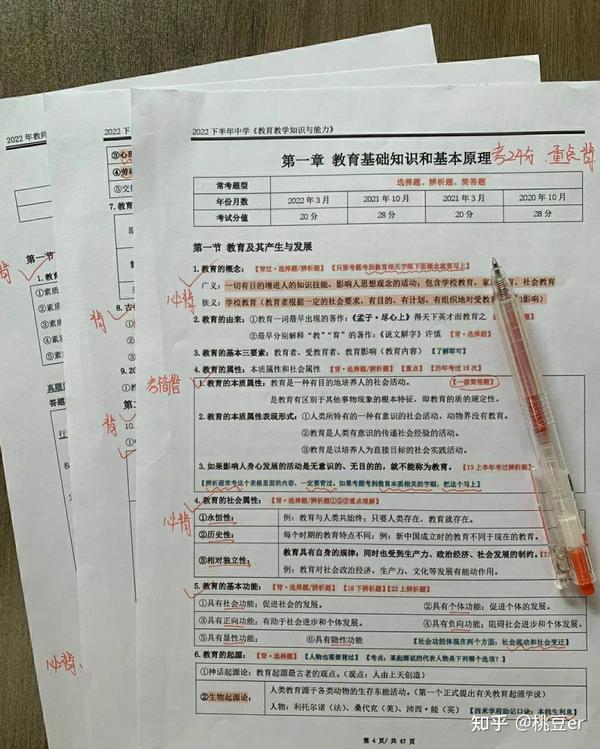 2022 年教师
2022 下
2022 下半年中学《教育教学知识与能力》
第一章 教育基础知识和基本原理
考24分 重点背
常考题型 选择题、辨析题、简答题
年份月数 2022 年 3 月 2021 年 10 月 2021 年 3 月 2020 年 10 月
考试分值 20 分 28 分 20 分 28 分
第一节 教育及其产生与发展
必背
1.教育的概念：【背过·选择题/辨析题】【只要考题考到教育相关字眼下面概念就要写上】
广义：一切有目的增进人的知识技能、影响人思想观念的活动；包含学校教育、家 社会教育
狭义：学校教育（教育者根据一定的社会要求，有目的、有计划、有组织地对受教 和影响）
2.教育的由来：①教育一词最早出现的著作：《孟子·尽心上》得天下英才而教育之
②最早分别解释“教”“育”的著作：《说文解字》许慎
3.教育的基本三要素：教育者、受教育者、教育影响（教育内容） 【了解即可】
4.教育的属性：本质属性和社会属性 【背·选择题/辨析题】【重点】【历年考过 15 次】
考简答
1.教育的本质属性：教育是一种有目的地培养人的社会活动。 【一般简答题】
是教育有区别于其他事物现象的根本特征，即教育的质的规定性。
2.教育的本质属性表现形式：①人类所特有的一种有意识的社会活动，动物界没有教育。
②教育是人类有意识的传递社会经验的活动。
③教育是以培养人为直接目标的社会实践活动。
3.如果影响人身心发展的活动是无意识的、无目的的，就不能称为教育。【13 上半年考过辨析题】
【辨析题常考这个表格里面的内容，一定要背过，如果考题考到教育本质相关的字眼，把这个写上】
必背
4.教育的社会属性：【背·选择题/辨析题①②③重点理解】
①永恒性： 例：教育与人类共始终；只要人类存在，教育就存在。
②历史性： 每个时期的教育特点不同；例：新中国成立时的教育不同于现在的教育。
③相对独立性： 教育具有自身的规律；同时也受到生产力、政治经济、社会发展的制约。
例：教育对社会政治经济、生产力、文化等发展有能动作用。
5.教育的基本功能：【背·选择题/辨析题】【18 下辨析题】【22 上辨析题】
①具有社会功能：促进社会的发展。 ②具有个体功能：促进个体的发展。
③具有正向功能：有助于社会进步和个体发展。 ④具有负向功能：阻碍社会进步和个体发展。
⑤具有显性功能 ⑥具有隐性功能 【社会功能体现在两个方面：社会流动和社会变迁】
6.教育的起源：【背·选择题】【人物也需要背过】【考点：某起源说的代表人物是下列哪个选项？】
①神话起源论：教育起源最古老的观点。（观点：人由上天创造）
②生物起源论： 人类教育源于各类动物的生存本能活动。（第一个正式提出有关教育起源学说）
人物：利托尔诺（法）、桑代克（美）、沛西·能（英）【西米学府助记口诀：本能生利息】
第 4 页/ 共 67 页
知乎 @桃豆er